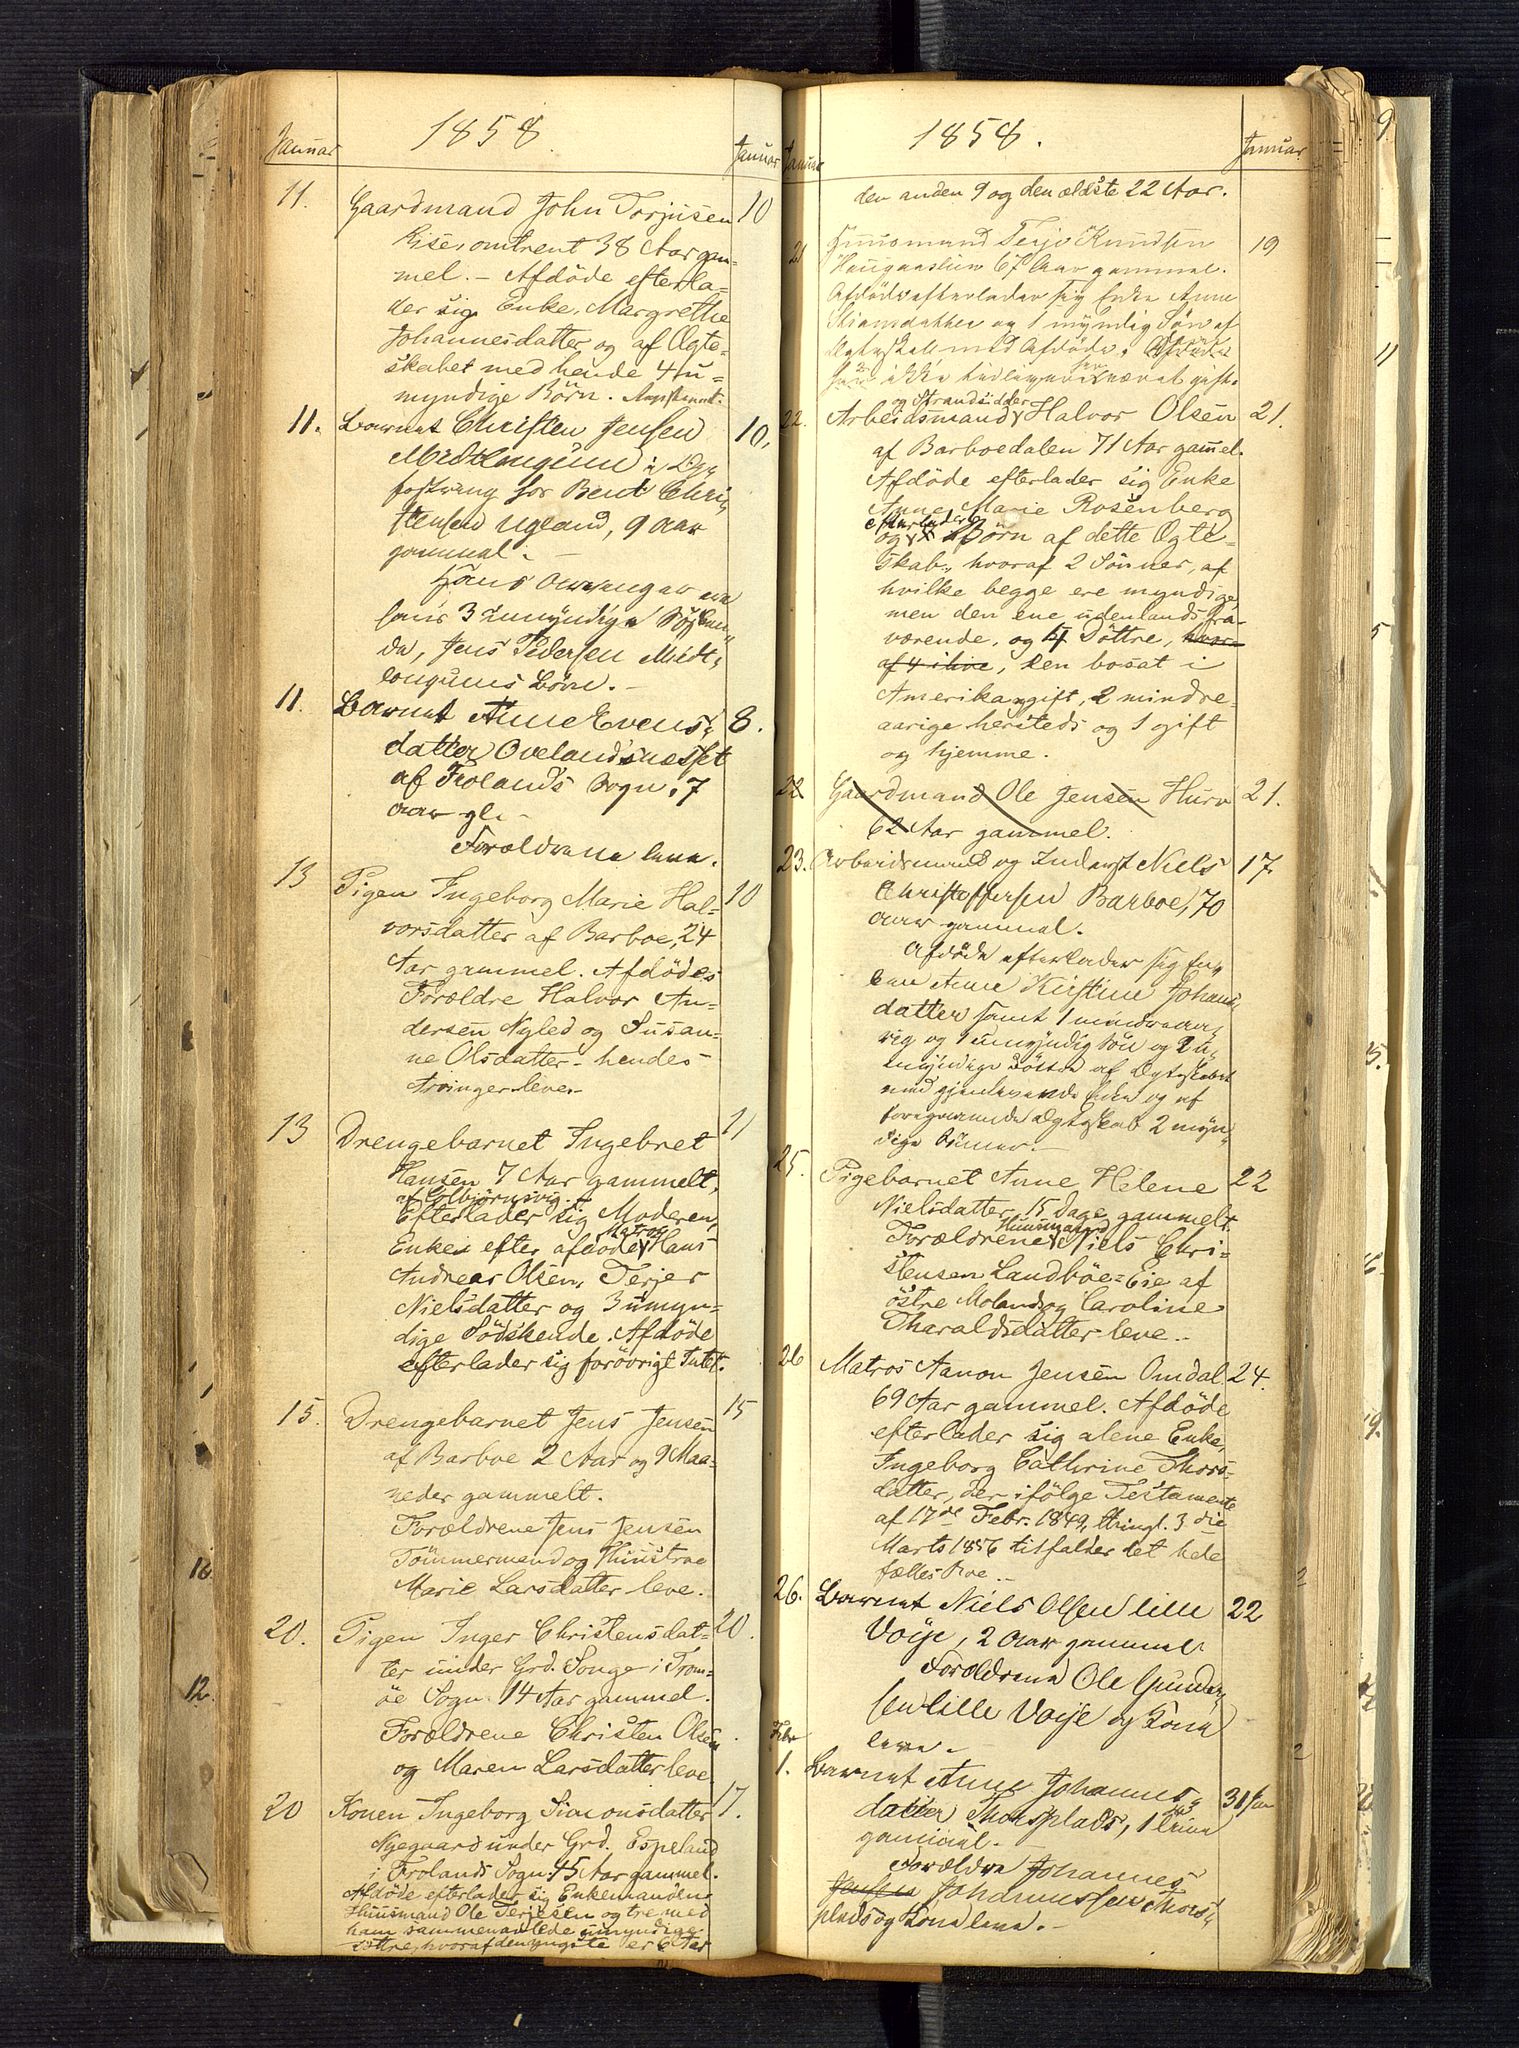 1858
Januar
Januar
11. Gaardmand John Terjusen 10
Riser omtrent 38 Aar gam-
mel. - Afdöde efterla-
der sig Enke, Margrethe
Johannesdatter og af Ægte-
skabet med hende 4 u-
myndige Börn.
11. Barnet Christen Jensen 10.
i Op-
fostring hos Bent Chri-
stensen Ugland, 9 Aar
gammel. -
Hans Arvinger ere
hans 3 umyndige Södsken-
de, Jens Pedersen Midt-
Börn. -
11. Barnet Anne Evens- 8.
datter Ovelandsnesset
af Frolands Sogn, 7
Aar gl. -
Forældrene leve.
13 Pigen Ingeborg Marie Hal- 10
vorsdatter af Barboe, 24
Aar gammel. Afdödes
Forældre Halvor An-
dersen Nyled og Susan-
ne Olsdatter - hendes
Arvinger leve. -
13 Drengebarnet Ingebret 11
Hansen 7 Aar gammelt,
af Colbjörnsvig
Efterlader sig Moderen,
Matros
Enke efter afdöde Hans
Andreas Olsen, Terjer
Nielsdatter og 3 umyn-
dige Södskende. Afdöde
efterlader sig forövrigt Intet.
15. Drengebarnet Jens Jensen 15
af Barboe 2 Aar og 9 Maa-
neder gammelt.
Forældrene Jens Jensen
Tömmermand og Hustrue
Marie Larsdatter leve.
20. Pigen Inger Christensdat- 20.
ter under Grd. Songe i Trom-
öe Sogn 14 Aar gammel.
Forældrene Christen Olsen
og Maren Larsdatter leve
20 Konen Ingeborg Simonsdatter 17.
Nygaard under Grd. Espeland
i Frolands Sogn 45 Aar gammel.
Afdöde efterlader sig Enkemanden
Huusmand Ole Terjesen og tre med
ham sammenavlede umyndige
Döttre, hvoraf den yngste er 6 Aar
1858.
Januar
Januar
den anden 9 og den ældste 22 Aar.
21 Huusmand Terje Knudsen 19
67 Aar gammel.
Afdöde efterlader sig Enke Anne
og 1 myndig Sön af
Ægteskab med Afdöde. Afdöde
har ikke tidligere været gift.
og Strandsidder
22. Arbeidsmand Halvor Olsen 21.
af Barboedalen 71 Aar gammel.
Afdöde efterlader sig Enke
Anne Marie Rosenberg
efterlader
og Börn af dette Ægte-
skab, hvoraf 2 Sönner, af
hvilke begge ere myndige
men den ene udenlands fra-
værende, og 4 Döttre, hvor-
af 4 ilive, een bosat i
Amerika gift, 2 mindre-
aarige hersteds og 1 gift
og hjemme.
22 Gaardmand Ole Jensen Hurv 21.
62 Aar gammel.
23. Arbeidsmand og Inderst Niels 17.
Christoffersen Barboe, 70
Aar gammel.
Afdöde efterlader sig En-
ken Anne Kirstine Johans-
datter samt 1 mindreaa-
rig og 1 umyndig Sön og 2 u-
myndige Döttre af Ægteskabet
med gjenlevende Enke og af
foregaaende Ægteskab 2 myn-
dige Sönner. -
25. Pigebarnet Anne Helene 22
Nielsdatter 15 Dage gammelt.
Huusmand
Forældrene Niels Chri-
stensen Landböe-Eie af
östre Moland og Caroline
Tharaldsdatter leve. -
26 Matros Aanon Jensen Omdal 24.
69 Aar gammel. Afdöde
efterlader sig alene Enke,
Ingeborg Cathrine Thors-
datter, der ifölge Testamente
af 17de Febr. 1849, thingl. 3die
Marts 1856 tilfalder det hele
fælles Boe. -
26. Barnet Niels Olsen lille 22
Voije, 2 Aar gammel
Forældrene Ole Gunder-
sen lille Voije og Kone
leve. -
Febr
1. Barnet Anne Johannes- 31 Jan
datter Thorsplads, 1
gammel. -
Forældre Johannes
Jensen Johannessen Thors-
plads og Kone leve. -